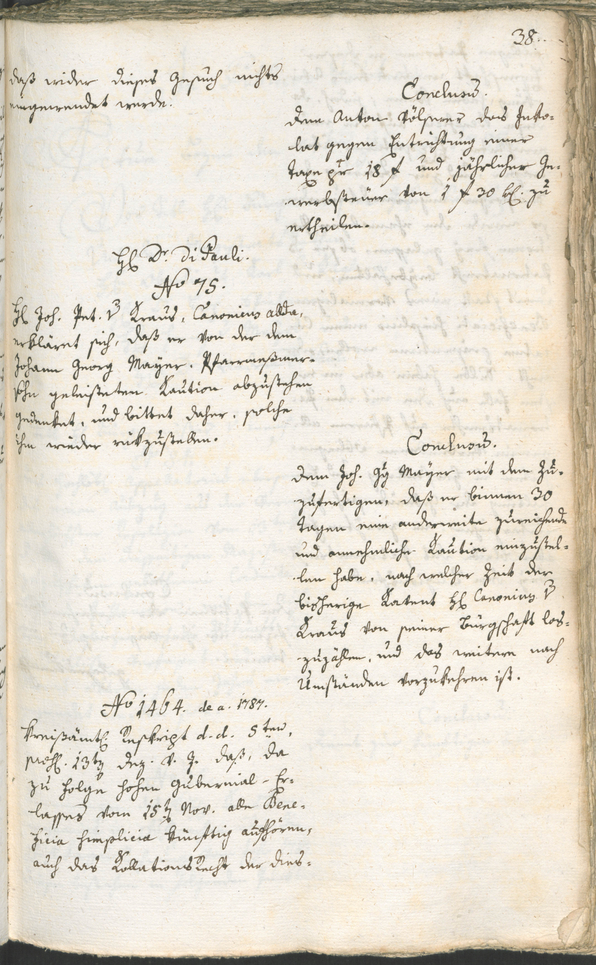 38.
daß wider dieses Gesuch nichts
eingewendet werde.
Conclusum.
dem Anton Völserer das Inko-
lat gegen Entrichtung einer
Taxe pr 18 f und jährlicher Ge-
werbsteuer von 1 f 30 kr. zu
ertheilen.
H. Dr. Di Pauli.
No 75.
H. Joh. Pet. v Kraus, Canonicus allda,
erkläret sich, daß er von der dem
Johann Georg Mayer, Pfarrmeßner-
geleisteten Kaution abzustehen
gedenket, und bittet daher, solche
ihm wieder rükzustellen.
Conclusum.
dem Joh. Gg Mayer mit dem zu-
zufertigen, daß er binnen 30
Tagen eine anderweite zureichende
und annehmliche Kaution einzustel-
len habe, nach welcher Zeit der
bisherige Kavent H. Canonicus v
Kraus von seiner Bürgschaft los-
zuzählen, und das weitere nach
Umständen vorzukehren ist.
No 1464. de a. 1787.
Kreisämtl. Reskript d. d. 5ten,
13ten Dez. v. J. daß, da
zu Folge hohen Gubernial-Er-
lasses vom 15ten Nov. alle Bene-
ficia simplicia künftig aufhören,
auch das Kollations Recht der dies-